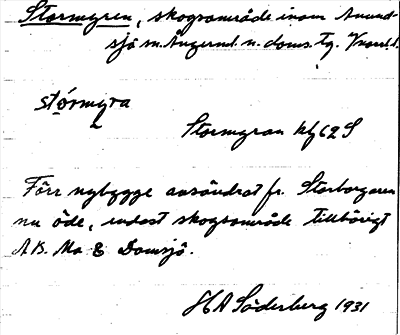 Stormyren, skogsområde inom Anund-
sjö sn. Ångerml. n. doms. tg.
stórmyra
Stormyran kly 62 S
Förr nybygge avsöndrat fr. Storborgaren
nu öde, endast skogsområde tillhörigt
A.B. Mo & Domsjö.
HA Söderberg 1931